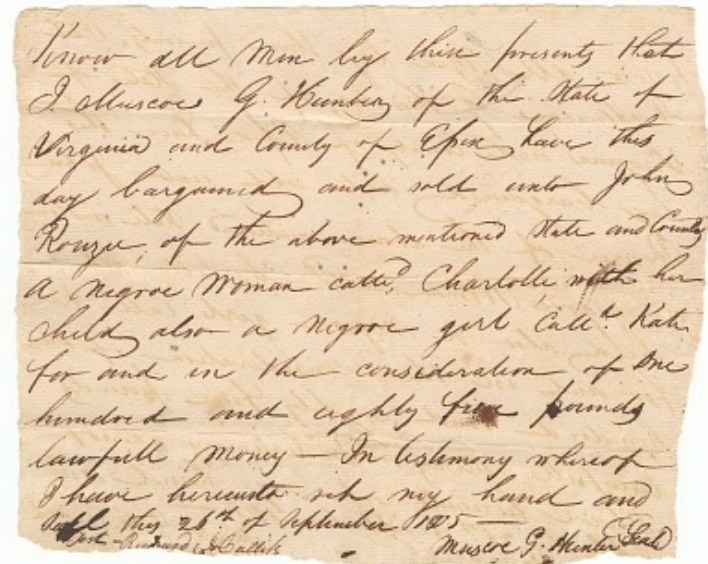 Know all Men by these presents that
I Muscoe G. Hunter of the State of
Virginia and County of Essex have this
day bargained and sold unto John
Rouzee, of the above mentioned State and County
A Negroe Woman calld. Charlotte, with her
child also a Negroe girl Calld. Kate
for and in the consideration of One
hundred and eighty five pounds
lawfull Money — In testimony whereof
I have hereunto set my hand and
Seal this 26th. of September 1805 —
Test - Richard
Muscoe G. Hunter Seal